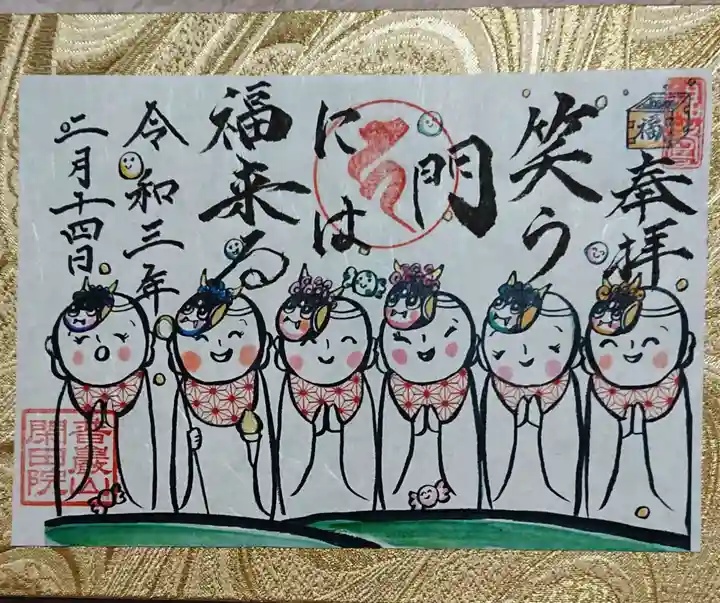 奉拝
福
笑う
門
には
福来る
令和三年
二月十四日
香嚴山
開田院